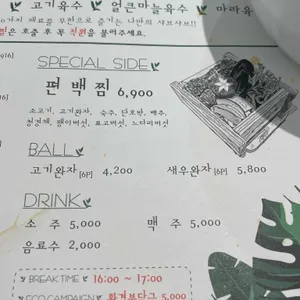 고기육수 얼큰마늘육수 마라육
가지 재료를 무한으로 즐기는 나만의 샤브샤브!!
은 호출 후 꼭 직원을 불러주세요.
916]
SPECIAL SIDE
편백찜 6,900
소고기, 고기완자, 숙주, 단호박, 배추,
청경채, 팽이버섯, 표고버섯, 느타리버섯
BALL
고기완자 [6P] 4,200 새우완자 [6P] 5,800
DRINK
소주 5,000 맥주 5,000
음료수 2,000
BREAK TIME 16:00 ~ 17:00
ECO CAMPAIGN 환경부담금 5,000